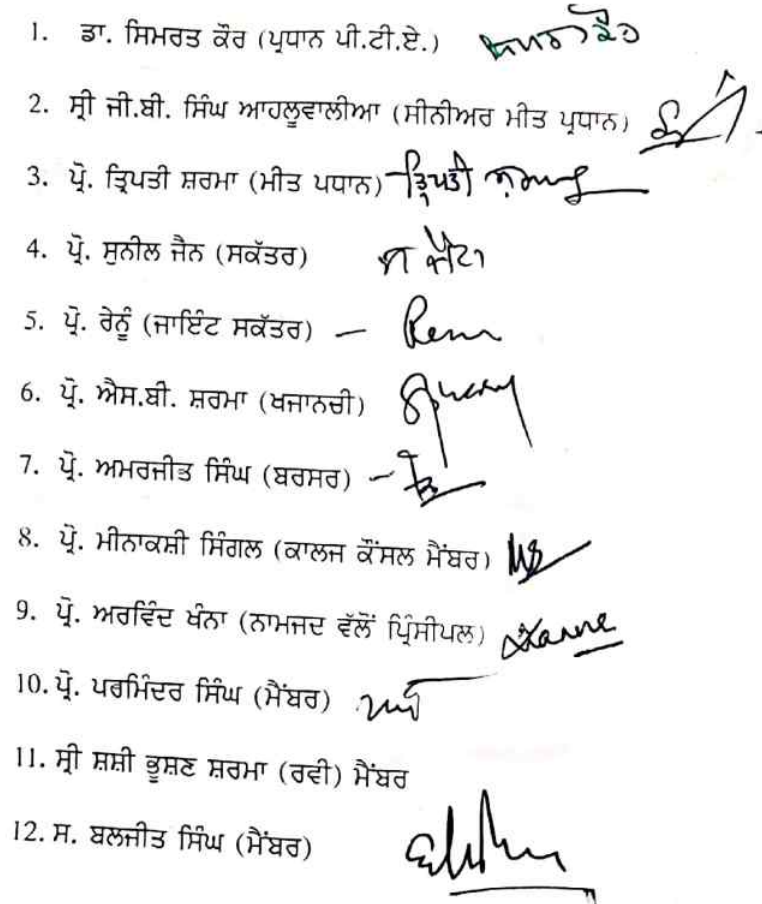 1. ਡਾ. ਸਿਮਰਤ ਕੌਰ (ਪ੍ਰਧਾਨ ਪੀ.ਟੀ.ਏ.)
2. ਸ੍ਰੀ ਜੀ.ਬੀ. ਸਿੰਘ ਆਹਲੂਵਾਲੀਆ (ਸੀਨੀਅਰ ਮੀਤ ਪ੍ਰਧਾਨ)
3. ਪ੍ਰੋ. ਤ੍ਰਿਪਤੀ ਸ਼ਰਮਾ (ਮੀਤ ਪਧਾਨ) ਤ੍ਰਿਪਤੀ
4. ਪ੍ਰੋ. ਸੁਨੀਲ ਜੈਨ (ਸਕੱਤਰ)
5. ਪ੍ਰੋ. ਰੇਨੂੰ (ਜਾਇੰਟ ਸਕੱਤਰ) –
6. ਪ੍ਰੋ. ਐਸ.ਬੀ. ਸ਼ਰਮਾ (ਖਜਾਨਚੀ)
7. ਪ੍ਰੋ. ਅਮਰਜੀਤ ਸਿੰਘ (ਬਰਸਰ) –
8. ਪ੍ਰੋ. ਮੀਨਾਕਸ਼ੀ ਸਿੰਗਲ (ਕਾਲਜ ਕੌਂਸਲ ਮੈਂਬਰ)
9. ਪ੍ਰੋ. ਅਰਵਿੰਦ ਖੰਨਾ (ਨਾਮਜਦ ਵੱਲੋਂ ਪ੍ਰਿੰਸੀਪਲ)
10. ਪ੍ਰੋ. ਪਰਮਿੰਦਰ ਸਿੰਘ (ਮੈਂਬਰ)
11. ਸ੍ਰੀ ਸ਼ਸ਼ੀ ਭੂਸ਼ਣ ਸ਼ਰਮਾ (ਰਵੀ) ਮੈਂਬਰ
12. ਸ. ਬਲਜੀਤ ਸਿੰਘ (ਮੈਂਬਰ)